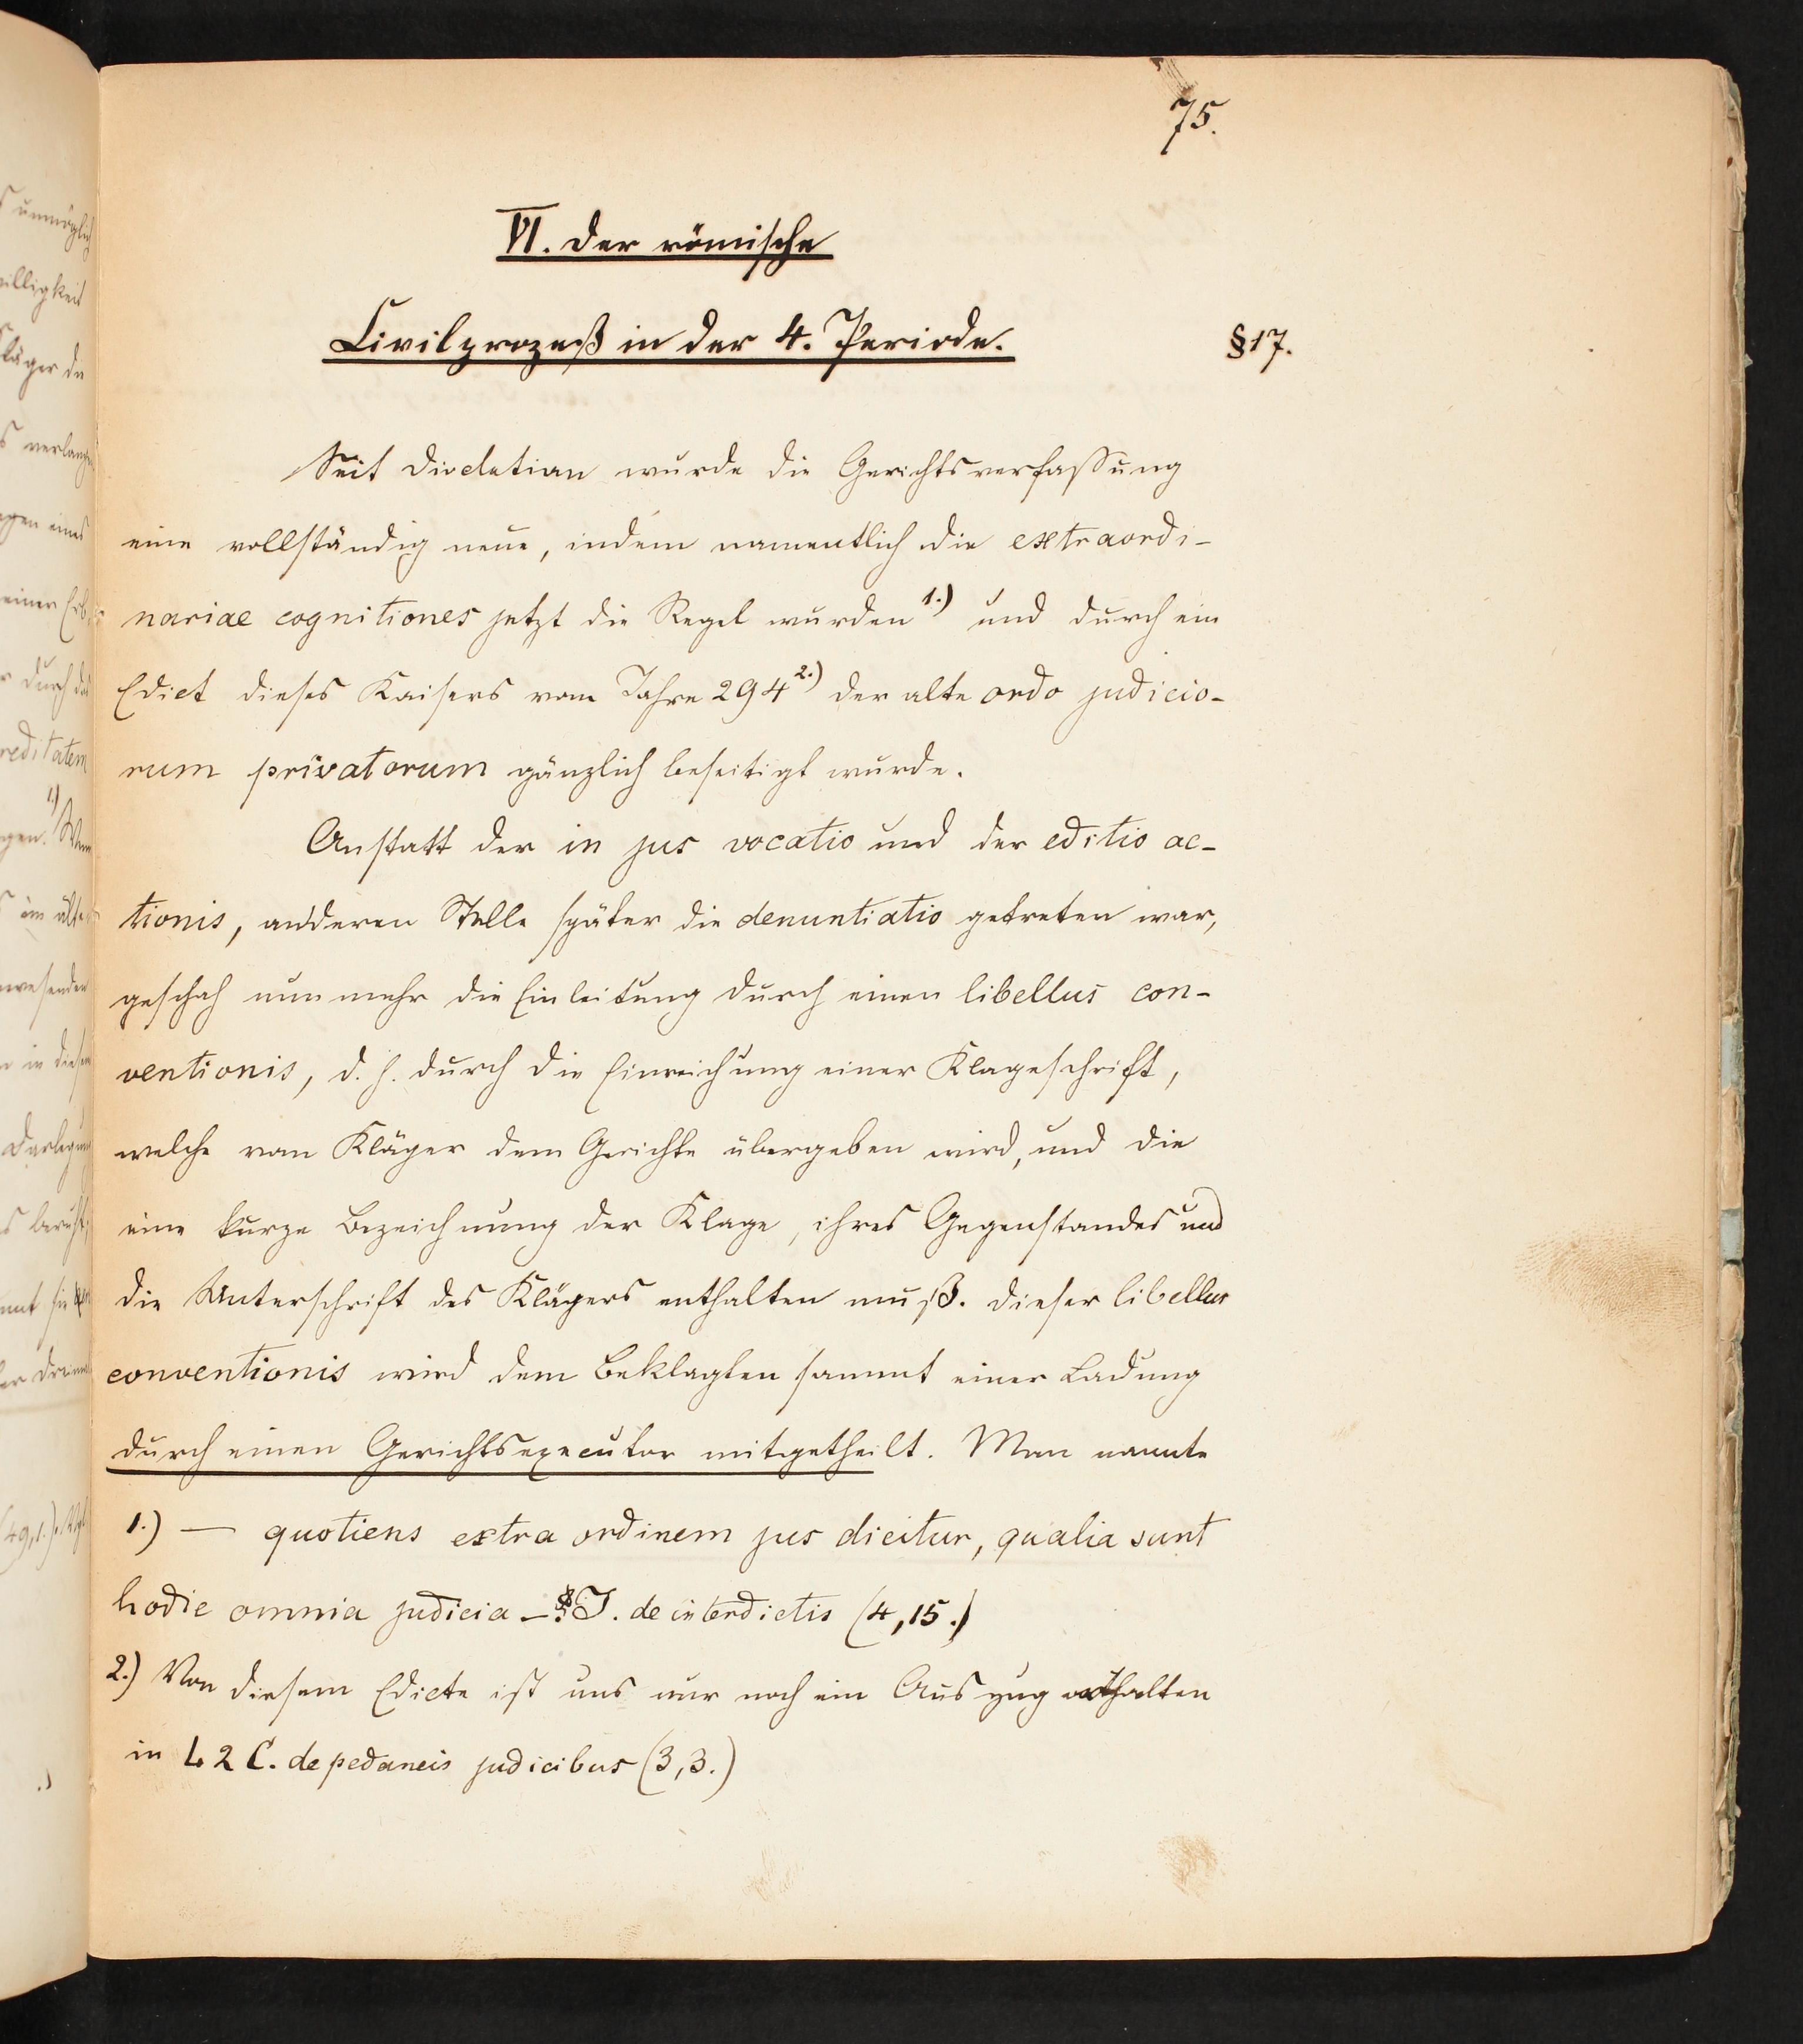 75.
VI. Der römische
Civilprozeß in der 4. Periode.
§ 17.
Seit Diocletian wurde die Gerichtsverfassung
eine vollständig neue, indem namentlich die extraordi-
nariae cognitiones jetzt die Regel wurden 1.) und durch ein
Edict dieses Kaisers vom Jahre 294 2.) der alte ordo judicio-
rum privatorum gänzlich beseitigt wurde.
Anstatt der in jus vocatio und der editio ac-
tionis, an deren Stelle später die denuntiatio getreten war,
geschah nunmehr die Einleitung durch einen libellus con-
ventionis, d. h. durch die Einreichung einer Klageschrift,
welche vom Kläger dem Gerichte übergeben wird, und die
eine kurze Bezeichnung der Klage, ihres Gegenstandes und
die Unterschrift des Klägers enthalten muß. Dieser libellus
conventionis wird dem Beklagten sammt einer Ladung
durch einen Gerichtsexecutor mitgetheilt. Man nannte
1.) — quotiens extra ordinem jus dicitur, qualia sunt
hodie omnia judicia – J. de interdictis (4,15.)
2.) Von diesem Edicte ist uns nur noch ein Auszug enthalten
in L 2 C. de pedaneis judicibus (3,3.)